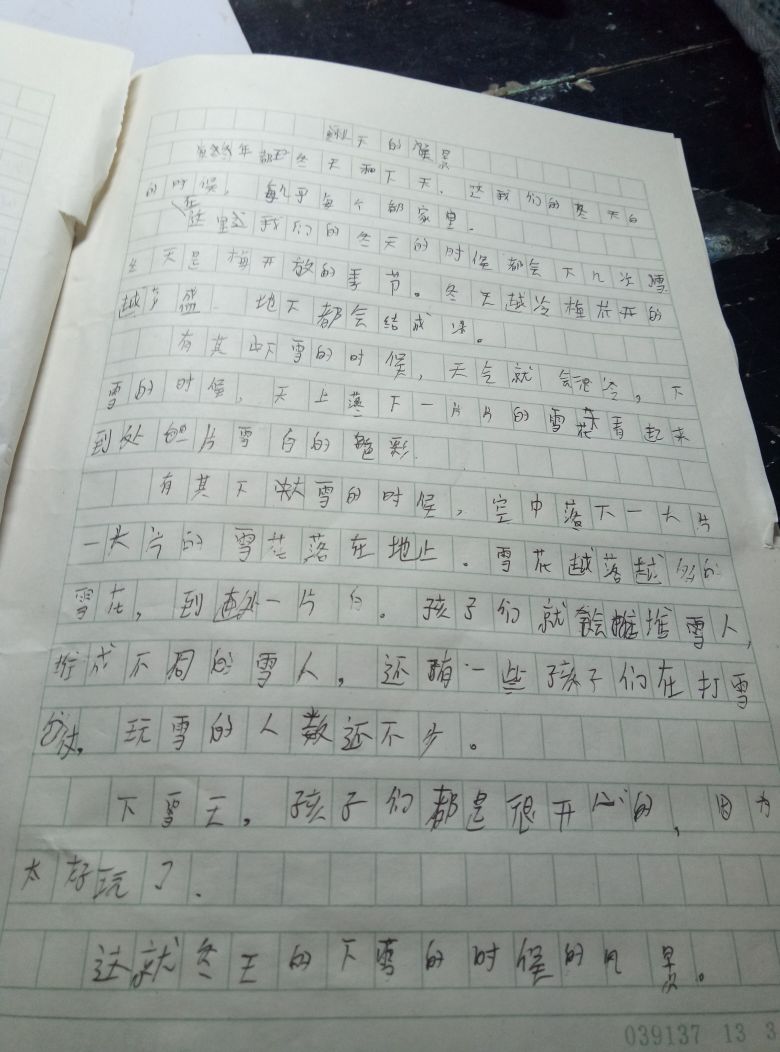 天的风景
年都 冬天和下天，这我们的冬天白
的时候，每个 每个都家里。
在这里 我们的冬天的时候都会下几次雪
冬天是梅开放的季节。冬天越冷梅花开的
越茂盛 地下都会结成冰。
有其 下雪的时候，天气就会很冷，下
雪的时候，天上落下一片片的雪花看起来
到处 片雪白的色彩.
有其下 大雪的时候，空中落下一大片
一大片的雪花落在地上。雪花越落越 的
雪花，到处一片白。孩子们就会 堆雪人，
堆成不同的雪人，还有一些孩子们在打雪
仗，玩雪的人数还不少。
下雪天，孩子们都是很开心的，因为
太好玩了.
这就冬天的下雪的时候的风景。
039137 13 3